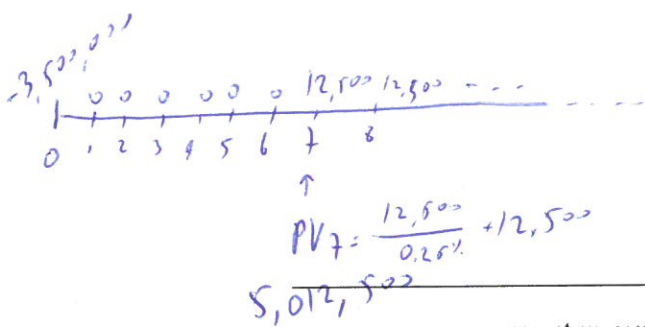 -3,500,000
0 0 0 0 0 0 12,500 12,500 - - - -
0 1 2 3 4 5 6 7 8
↑
PV7 = 12,500 / 0.25% + 12,500
5,012,500